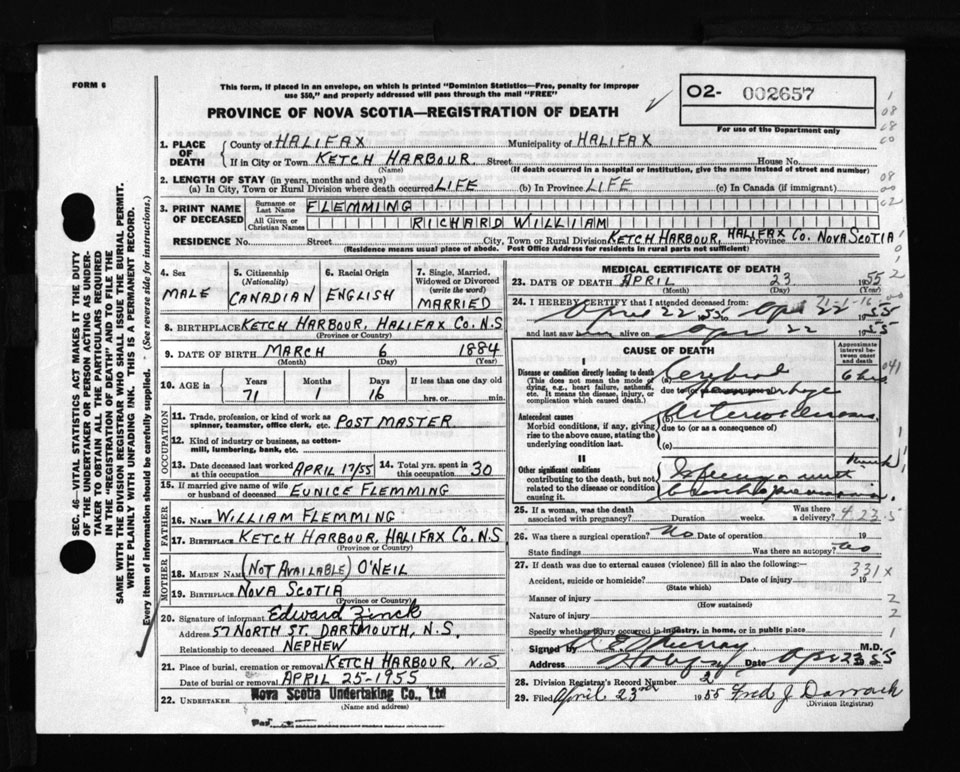 FORM 6
This form, if placed in an envelope, on which is printed "Dominion Statistics—Free, penalty for improper
use $50," and properly addressed will pass through the mail "FREE"
PROVINCE OF NOVA SCOTIA—REGISTRATION OF DEATH
O2- 002657
For use of the Department only
1. PLACE OF DEATH
County of HALIFAX Municipality of HALIFAX
If in City or Town KETCH HARBOUR. Street House No.
(Name) (If death occurred in a hospital or institution, give the name instead of street and number)
2. LENGTH OF STAY (in years, months and days)
(a) In City, Town or Rural Division where death occurred LIFE (b) In Province LIFE (c) In Canada (if immigrant)
3. PRINT NAME OF DECEASED
Surname or Last Name FLEMMING
All Given or Christian Names RICHARD WILLIAM
RESIDENCE No. Street City, Town or Rural Division KETCH HARBOUR, HALIFAX Province Co. NOVA SCOTIA
(Residence means usual place of abode. Post Office Address for residents in rural parts not sufficient)
4. Sex
MALE
5. Citizenship
(Nationality)
CANADIAN
6. Racial Origin
ENGLISH
7. Single, Married,
Widowed or Divorced
(write the word)
MARRIED
8. BIRTHPLACE KETCH HARBOUR, HALIFAX Co. N.S
(Province or Country)
9. DATE OF BIRTH MARCH 6 1884
(Month) (Day) (Year)
10. AGE in
Years Months Days If less than one day old
71 1 16 hrs. or min.
OCCUPATION
11. Trade, profession, or kind of work as
spinner, teamster, office clerk, etc. POST MASTER
12. Kind of industry or business, as cotton-
mill, lumbering, bank, etc.
13. Date deceased last worked
at this occupation APRIL 17/55
14. Total yrs. spent in
this occupation 30
15. If married give name of wife
or husband of deceased EUNICE FLEMMING
FATHER
16. NAME WILLIAM FLEMMING
17. BIRTHPLACE KETCH HARBOUR, HALIFAX Co. N.S
(Province or Country)
MOTHER
18. MAIDEN NAME (NOT AVAILABLE) O'NEIL
19. BIRTHPLACE NOVA SCOTIA
(Province or Country)
20. Signature of informant Edward Zinck
Address 57 NORTH ST. DARTMOUTH, N.S.
Relationship to deceased NEPHEW
21. Place of burial, cremation or removal KETCH HARBOUR, N.S
Date of burial or removal APRIL 25-1955
22. UNDERTAKER Nova Scotia Undertaking Co., Ltd
(Name and address)
Per
MEDICAL CERTIFICATE OF DEATH
23. DATE OF DEATH APRIL 23 1955
(Month) (Day) (Year)
24. I HEREBY CERTIFY that I attended deceased from:
April 22 55 Apr 22 1955
and last saw alive on Apr 22 1955
CAUSE OF DEATH
Approximate interval between onset and death
I
Disease or condition directly leading to death
(This does not mean the mode of
dying, e.g., heart failure, asthenia,
etc. It means the disease, injury, or
complication which caused death.)
(a) Cerebral 6 hrs
due to
Antecedent causes
Morbid conditions, if any, giving
rise to the above cause, stating the
underlying condition last.
(b) Arteriosclerosis
due to (or as a consequence of)
(c)
II
Other significant conditions
contributing to the death, but not
related to the disease or condition
causing it.
with
bronchopneumonia.
25. If a woman, was the death
associated with pregnancy? Duration weeks. Was there
a delivery?
4.23.5
26. Was there a surgical operation? No Date of operation 19
State findings Was there an autopsy? No
27. If death was due to external causes (violence) fill in also the following:—
331x
Accident, suicide or homicide? Date of injury 19
(State which)
Manner of injury 2
(How sustained)
Nature of injury 2
Specify whether injury occurred in industry, in home, or in public place 1
Signed by Murray M.D.
Address Date Apr 23 55
28. Division Registrar's Record Number 2
29. Filed April 23rd 1955 Fred J Darrach
(Division Registrar)
SEC. 46—VITAL STATISTICS ACT MAKES IT THE DUTY
OF THE UNDERTAKER OR PERSON ACTING AS UNDER-
TAKER TO OBTAIN ALL THE PARTICULARS REQUIRED
IN THE "REGISTRATION OF DEATH" AND TO FILE THE
SAME WITH THE DIVISION REGISTRAR WHO SHALL ISSUE THE BURIAL PERMIT.
WRITE PLAINLY WITH UNFADING INK. THIS IS A PERMANENT RECORD.
Every item of information should be carefully supplied. (See reverse side for instructions.)